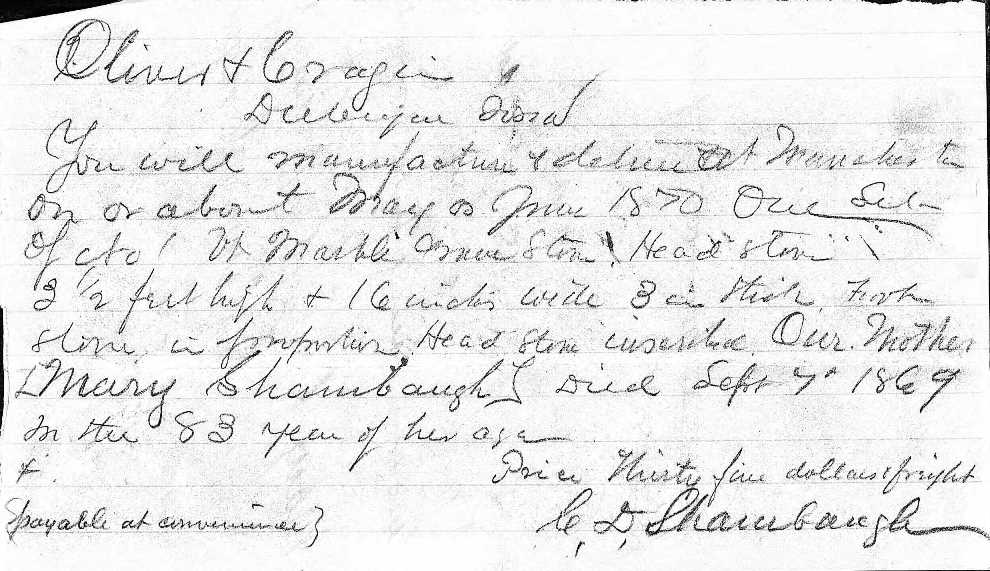 Oliver & Cragin
Dubuque Iowa
You will manufacture & deliver at Manchester
on or about May or June 1870 One Set
of No 1 Vt Marble Grave Stone Head Stone
3 1/2 feet high & 16 inches wide 3 in thick Foot
Stone in proportion Head Stone inscribed Our Mother
[Mary Shambaugh] Died Sept 7" 1869
in the 83 year of her age
Price Thirty five dollars & freight
{payable at convenience}
C. D. Shambaugh